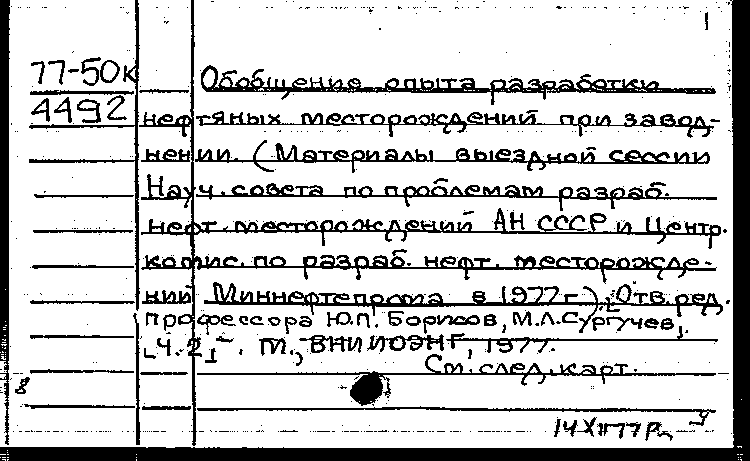 1
77-50к
4492
Обобщение опыта разработки
нефтяных месторождений при завод-
нении. (Материалы выездной сессии
Науч. совета по проблемам разраб.
нефт. месторождений АН СССР и Центр.
комис. по разраб. нефт. месторожде-
ний Миннефтепрома в 1977 г.). [Отв. ред.
профессора Ю.П. Борисов, М.Л. Сургучев].
[Ч. 2] - . М., ВНИИОЭНГ, 1977.
См. след. карт.
8
14 XII 77